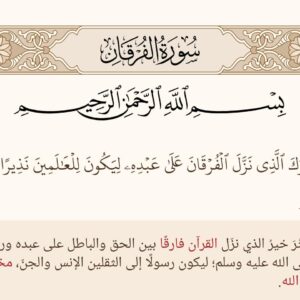 سُورَةُ الفُرْقَانِ
بِسْمِ ٱللَّهِ ٱلرَّحْمَٰنِ ٱلرَّحِيمِ
ٱلَّذِى نَزَّلَ ٱلْفُرْقَانَ عَلَىٰ عَبْدِهِۦ لِيَكُونَ لِلْعَٰلَمِينَ نَذِيرًا
خيرُ الذي نزَّل القرآن فارقًا بين الحق والباطل على عبده
الله عليه وسلم؛ ليكون رسولًا إلى الثقلين الإنس والجنّ،
الله.